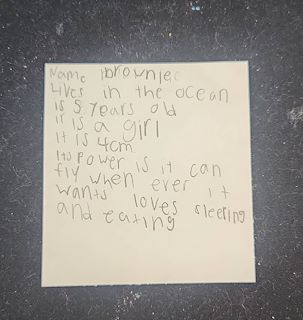 Name brownie
Lives in the ocean
is 5 years old
it is a girl
It is 4cm
Its power is it can
fly when ever it
wants loves sleeping
and eating